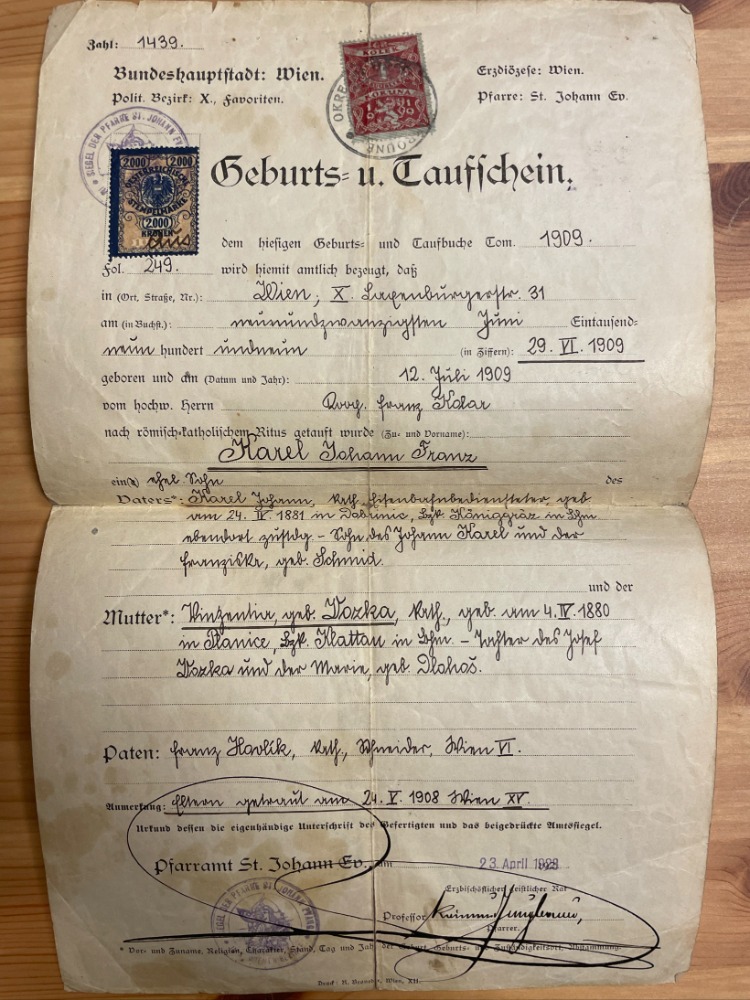 Zahl: 1439.
Bundeshauptstadt: Wien.
Polit. Bezirk: X., Favoriten.
KOLEK
1
KORUNA
Erzdiözese: Wien.
Pfarre: St. Johann Ev.
SIEGEL DER PFARRE ST. JOHANN
2000 2000
ÖSTERREICHISCHE
STEMPELMARKE
2000
KRONEN
Geburts- u. Taufschein.
Aus dem hiesigen Geburts- und Taufbuche Tom. 1909.
Fol. 249. wird hiemit amtlich bezeugt, daß
in (Ort, Straße, Nr.): Wien, X. Laxenburgerstr. 31
am (in Buchst.): neunundzwanzigsten Juni Eintausend-
neun hundert undneun (in Ziffern): 29. VI. 1909
geboren und am (Datum und Jahr): 12. Juli 1909
vom hochw. Herrn Franz Kolar
nach römisch-katholischem Ritus getauft wurde (Zu- und Vorname):
Karel Johann Franz
ein(e) ehel. Sohn des
Vaters*: Karel Johann, kath. Eisenbahnbediensteter, geb.
am 24. IV. 1881 in Bzk. Königgräz in Bhm
ebendort zustdg. – Sohn des Johann Karel und der
Franziska, geb. Schmid.
und der
Mutter*: Vinzentia, geb. Wozka, kath., geb. am 4. IV. 1880
in Planice, Bzk. Klattau in Bhm. – Tochter des Josef
Wozka und der Marie, geb.
Paten: Franz Havlik, kath., Schneider, Wien VI.
Anmerkung: Eltern getraut am 24. V. 1908 Wien XV.
Urkund dessen die eigenhändige Unterschrift des Gefertigten und das beigedrückte Amtssiegel.
Pfarramt St. Johann Ev., am 23. April 1923
Erzbischöflicher geistlicher Rat
Professor
Pfarrer.
SIEGEL DER PFARRE ST. JOHANN
* Vor- und Zuname, Religion, Charakter, Stand, Tag und Jahr der Geburt, Geburts- und Zuständigkeitsort, Abstammung.
Wien, XII.